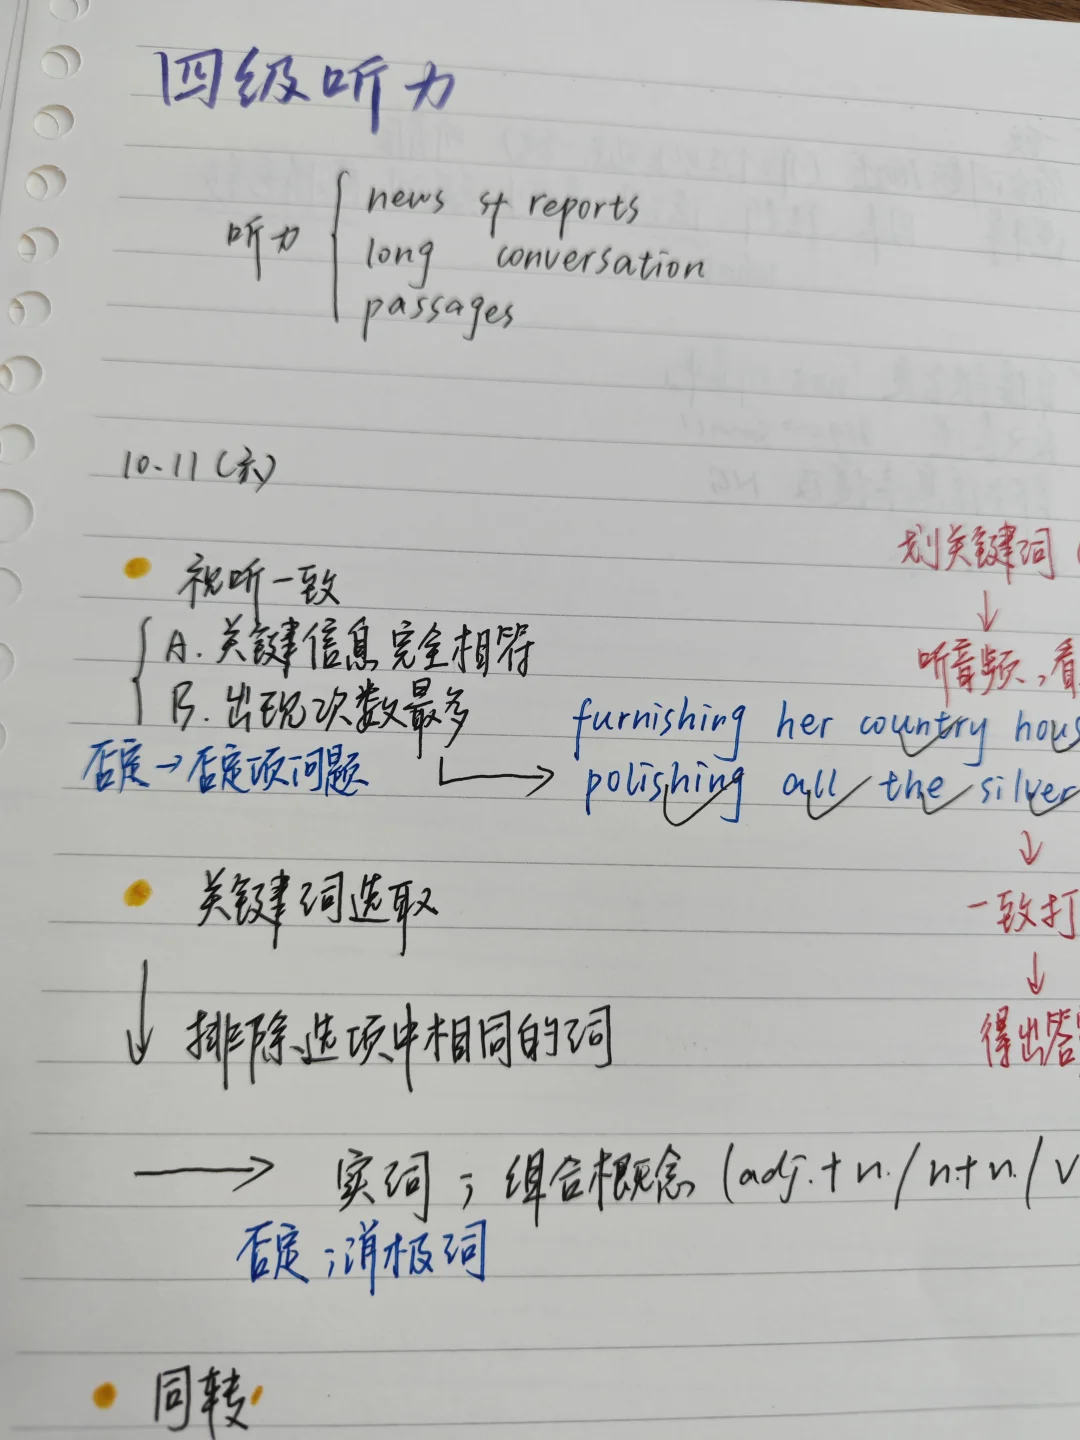 四级听力
news reports
听力
long conversation
passages
10.11(六)
划关键词
视听一致
A.关键信息完全相符
听音频,看
B.出现次数最多
furnishing her country hous
否定→否定项问题
polishing all the silver
关键词选取
一致打
排除选项中相同的词
得出答
实词;组合概念(adj.+n./n+n./v
否定;消极词
同转